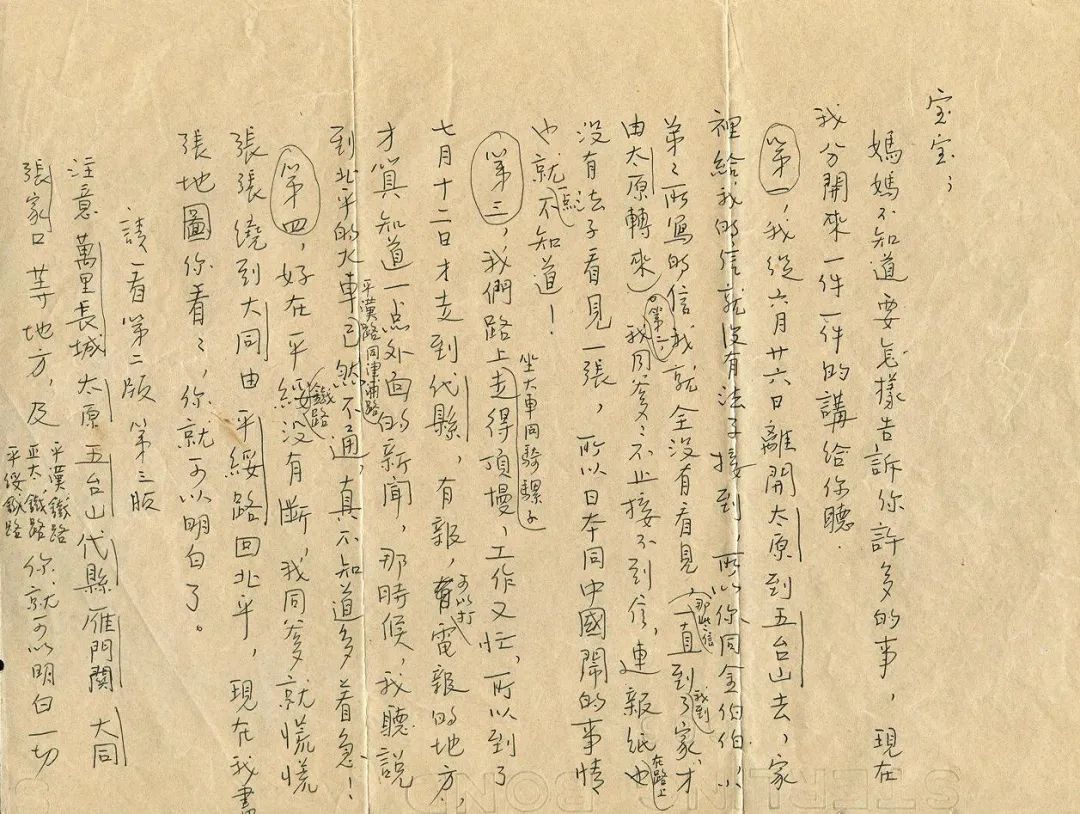 宝宝；
媽媽不知道要怎樣告訴你許多的事，現在
我分開來一件一件的講給你聽．
第一，我從六月廿六日離開太原到五台山去，家
裡給我的信就沒有法子接到，所以你同金伯伯、小
弟々所寫的信我就全沒有看見（那些信一直到我到了家，才
由太原轉來）。第二，我同爹々不止接不到信，連報紙在路上也
沒有法子看見一張，所以日本同中國鬧的事情
也就一點不知道！
第三，我們路上坐大車同騎騾子走得頂慢，工作又忙，所以到了
七月十二日才走到代縣，有報，可以打電報的地方，
才算知道一点外面的新聞，那時候，我聽說
到北平的火車平漢路同津浦路已然不通，真不知道多着急！
第四，好在平綏鐵路沒有断，我同爹爹就慌慌
張張繞到大同由平綏路回北平，現在我畫
張地圖你看々，你就可以明白了。
請看第二版 第三版
注意萬里長城 太原 五台山 代縣 雁門關 大同
張家口等地方，及平漢鐵路 正太鐵路 平綏鐵路 你就可以明白一切